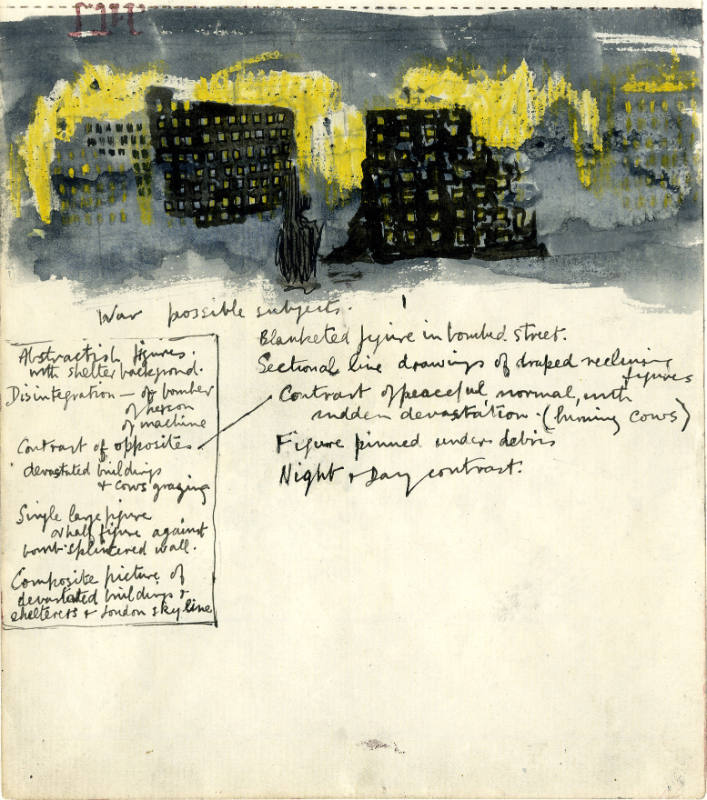 War possible subjects.
Abstractish figures.
with shelter background.
Disintegration — of bomber
of person
of machine
Contract of opposites.
devastated buildings
& cows grazing
Single large figure
or half figure against
bomb-splintered wall.
Composite picture of
devastated buildings &
shelterers & London skyline
Blanketed figure in bombed street.
Sectional line drawings of draped reclining
figures
Contrast of peaceful normal, with
sudden devastation. (burning cows)
Figure pinned under debris
Night & Day contrast.